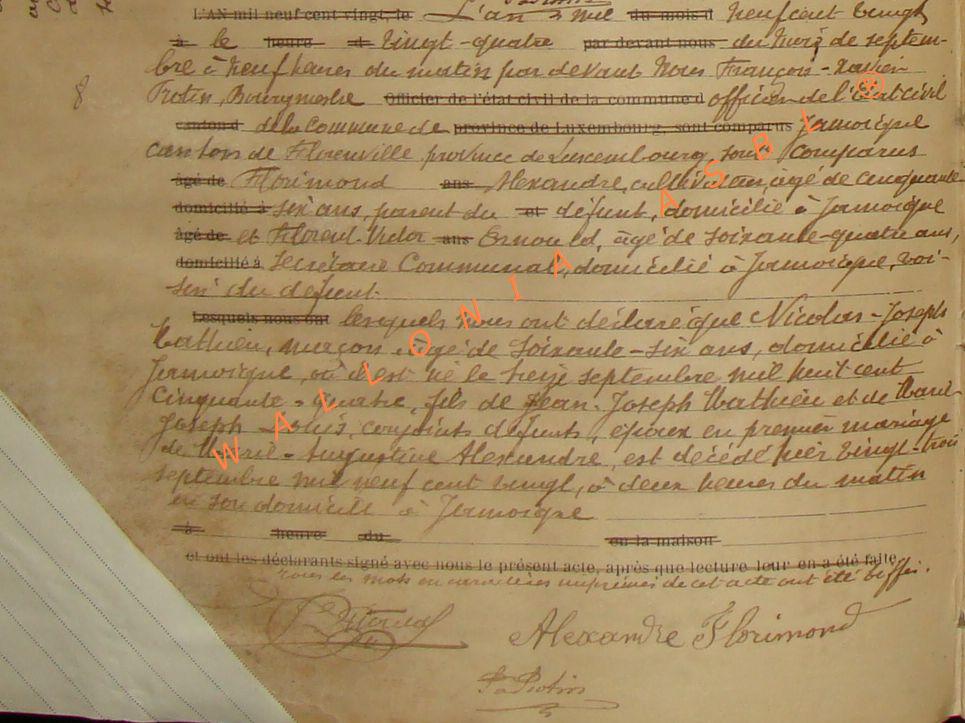 L'AN mil neuf cent vingt, le L'an mil du mois d neuf cent vingt
à le heure et vingt-quatre par devant nous du mois de septem-
bre à neuf heures du matin par devant Nous François-Xavier
Protin, Bourgmestre Officier de l'état civil de la commune d officier de l'Etat civil
canton d de la Commune de province de Luxembourg, sont comparus Jamoigne
canton de Florenville province de Luxembourg, sont Comparus
âgé de Florimond ans Alexandre, cultivateur, âgé de cinquante
domicilié à six ans, parent du et défunt, domicilié à Jamoigne
âgé de et Florent-Victor ans Ernould, âgé de soixante-quatre ans,
domicilié à Secrétaire Communal, domicilié à Jamoigne, voi-
sin du défunt
Lesquels nous ont lesquels nous ont déclaré que Nicolas-Joseph
Mathieu, maçon âgé de soixante-six ans, domicilié à
Jamoigne, où il est né le treize septembre mil huit cent
Cinquante-quatre, fils de Jean-Joseph Mathieu et de Marie
Joseph conjoints défunts, époux en premier mariage
de Marie-Augustine Alexandre, est décédé hier vingt-trois
septembre mil neuf cent vingt, à deux heures du matin
en son domicile à Jamoigne
à heure du en la maison
et ont les déclarants signé avec nous le présent acte, après que lecture leur en a été faite
Tous les mots en caractères imprimés de cet acte ont été biffés.
Alexandre Florimond
Protin
WALLONIA ASBL ®
8